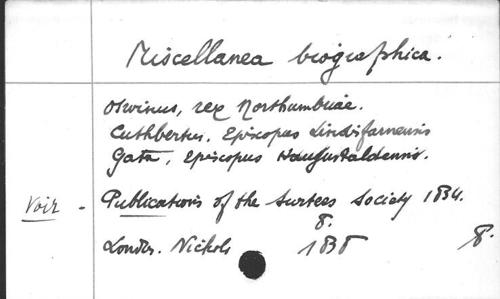 Miscellanea biographica.
Oswinus, rex Northumbriae.
Cuthbertus, Episcopus Lindisfarnensis
Gata, Episcopus Haugustaldensis.
Voir - Publications of the Surtees Society 1834.
8.
Londres. Nichols 1838 8.